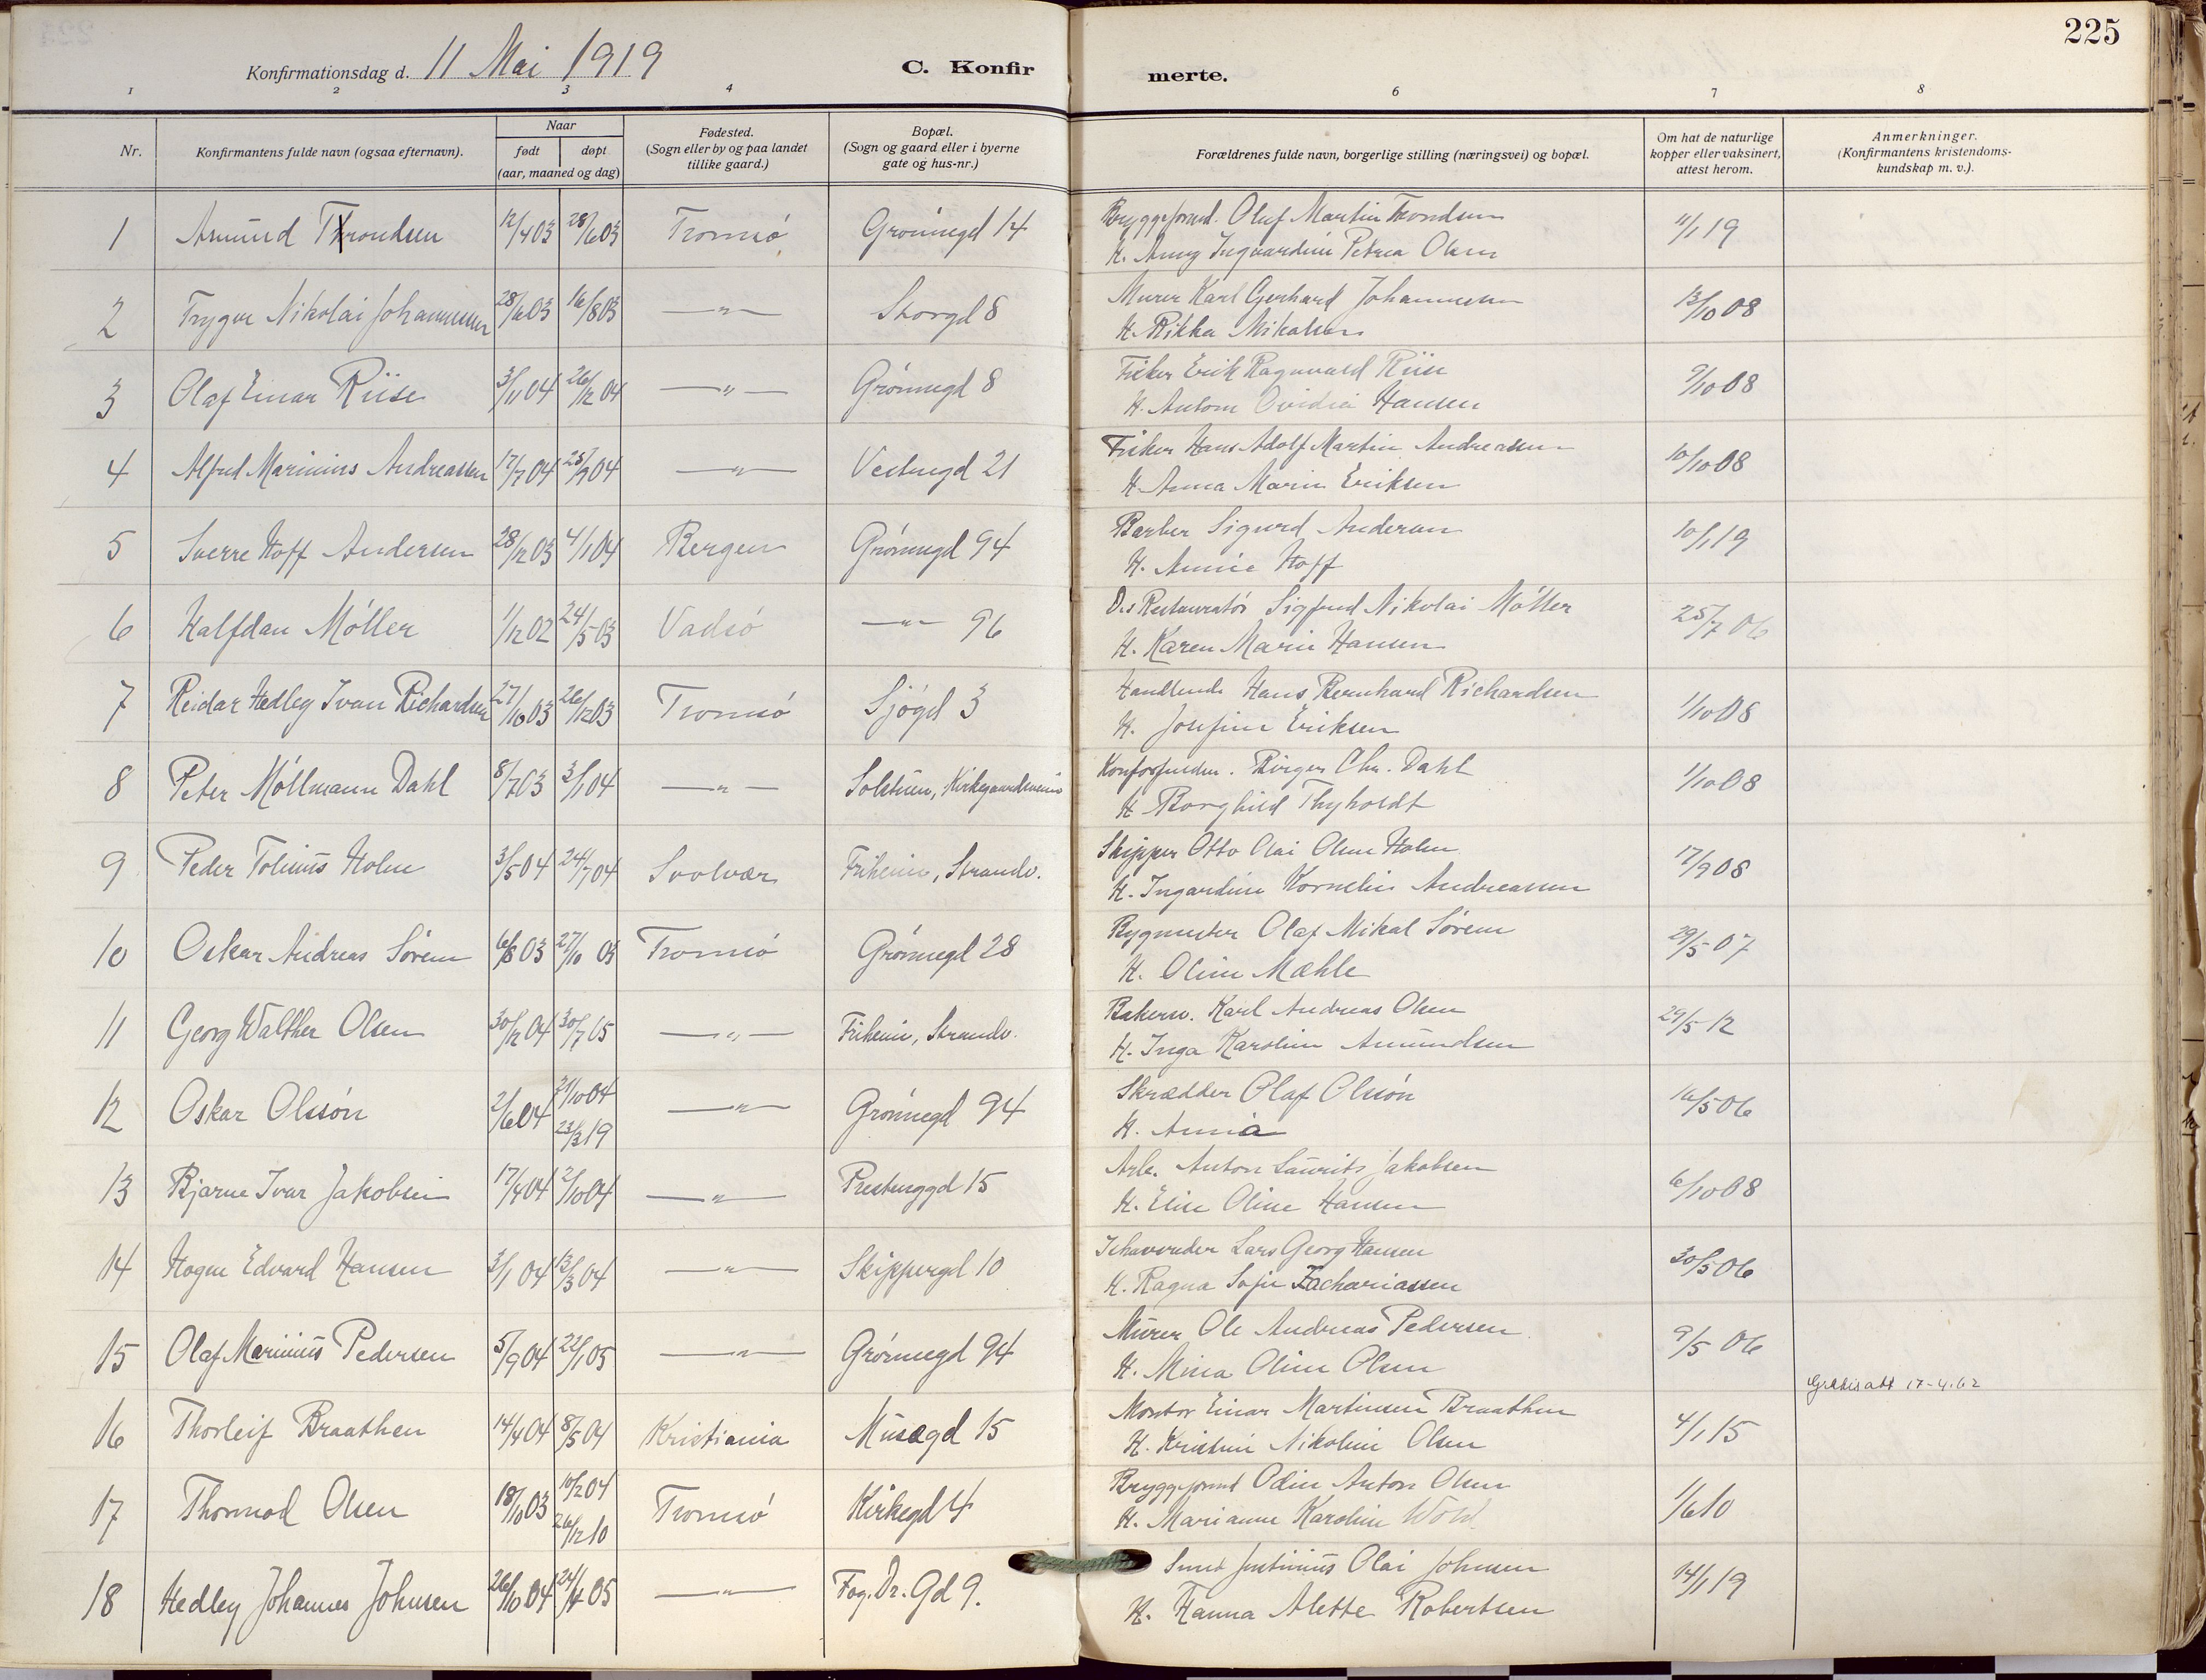 225
Konfirmationsdag d. 11 Mai 1919
C. Konfirmerte.
1 2 3 4 6 7 8
Nr.
Konfirmantens fulde navn (ogsaa efternavn).
Naar
født døpt
(aar, maaned og dag)
Fødested.
(Sogn eller by og paa landet
tillike gaard.)
Bopæl.
(Sogn og gaard eller i byerne
gate og hus-nr.)
Forældrenes fulde navn, borgerlige stilling (næringsvei) og bopæl.
Om hat de naturlige
kopper eller vaksinert,
attest herom.
Anmerkninger.
(Konfirmantens kristendoms-
kundskap m. v.).
1 Amund Trondsen 12/4 03 28/6 03 Tromsö Grönnegd 14 Bryggeformd. Oluf Martin Trondsen 11/1 19
H. Anny Ingvardine Petrea Olsen
2 Trygve Nikolai Johannessen 28/6 03 16/8 03 —"— Storgd 8 Murer Karl Gerhard Johannessen 13/10 08
H. Rikka Nikolaisen
3 Olaf Einar Riise 3/11 04 26/12 04 —"— Grönnegd 8 Fisker Erik Ragnvald Riise 9/10 08
H. Antone Ovidia Hansen
4 Alfred Marinius Andreassen 17/7 04 25/9 04 —"— Vestregd 21 Fisker Hans Adolf Martin Andreassen 10/10 08
H. Anna Marie Eriksen
5 Sverre Hoff Andersen 28/12 03 4/1 04 Bergen Grönnegd 94 Barber Sigurd Andersen 10/1 19
H. Annie Hoff
6 Halfdan Möller 1/12 02 24/5 03 Vadsö —"— 96 D.s Restauratör Sigfred Nikolai Möller 25/7 06
H. Karen Marie Hansen
7 Reidar Hedley Ivan Richardsen 27/10 03 26/12 03 Tromsö Sjögd 3 Handlende Hans Bernhard Richardsen 1/10 08
H. Josefine Eriksen
8 Peter Möllmann Dahl 8/7 03 3/1 04 —"— Solstuen, Kirkegaardsveien Birger Chr. Dahl 1/10 08
H Borghild Thyholdt
9 Peder Tolinius Holm 3/5 04 24/7 04 Svolvær Friheim, Strandv. Skipper Otto Olai Olsen Holm 17/9 08
H. Ingardine Kornelie Andreassen
10 Oskar Andreas Sörem 6/8 03 27/10 03 Tromsö Grönnegd 28 Bygmester Olaf Mikal Sörem 29/5 07
H. Oline Mæhle
11 Georg Walther Olsen 30/12 04 30/7 05 —"— Friheim, Strandv. Bakersv. Karl Andreas Olsen 29/5 12
H. Inga Karoline Amundsen
12 Oskar Olssön 2/6 04 31/10 04 —"— Grönnegd 94 Skrædder Olaf Olssön 16/5 06
23/3 19 H. Anna
13 Bjarne Ivar Jakobsen 17/4 04 2/10 04 —"— Prestenggd 15 Arb. Anton Laurits Jakobsen 6/10 08
H. Elise Oline Hansen
14 Hogne Edvard Hansen 3/1 04 13/3 04 —"— Skippergd 10 Ishavsreder Lars Georg Hansen 30/5 06
H. Ragna Sofie Zachariassen
15 Olaf Marinius Pedersen 5/9 04 22/1 05 —"— Grönnegd 94 Murer Ole Andreas Pedersen 9/5 06
H. Mina Oline Olsen
16 Thorleif Braathen 14/4 04 8/5 04 Kristiania Musegd 15 Montör Einar Martinsen Braathen 4/1 15 17-4.62
H. Kristine Nikoline Olsen
17 Thormod Olsen 18/10 03 10/2 04 Tromsö Kirkegd 4 Bryggeformd Odin Anton Olsen 1/6 10
26/12 10 H. Marianne Karoline Wold
18 Hedley Johannes Johnsen 26/10 04 24/4 05 —"— Fog. Dr. Gd 9. Smed Justinius Olai Johnsen 14/1 19
H. Hanna Alette Robertsen